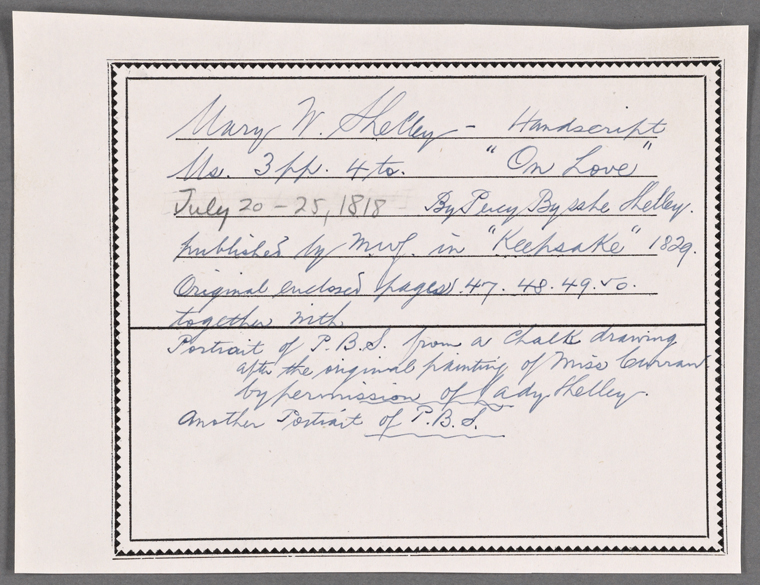 Mary W. Shelley - Handscript
Ms. 3 pp. 4to. "On Love"
July 20 - 25, 1818 By Percy Bysshe Shelley.
published by M.W.S. in "Keepsake" 1829.
Original enclosed pages. 47. 48. 49. 50.
together with
Portrait of P.B.S. from a Chalk drawing
after the original painting of Miss Curran
by permission of Lady Shelley.
Another Portrait of P.B.S.